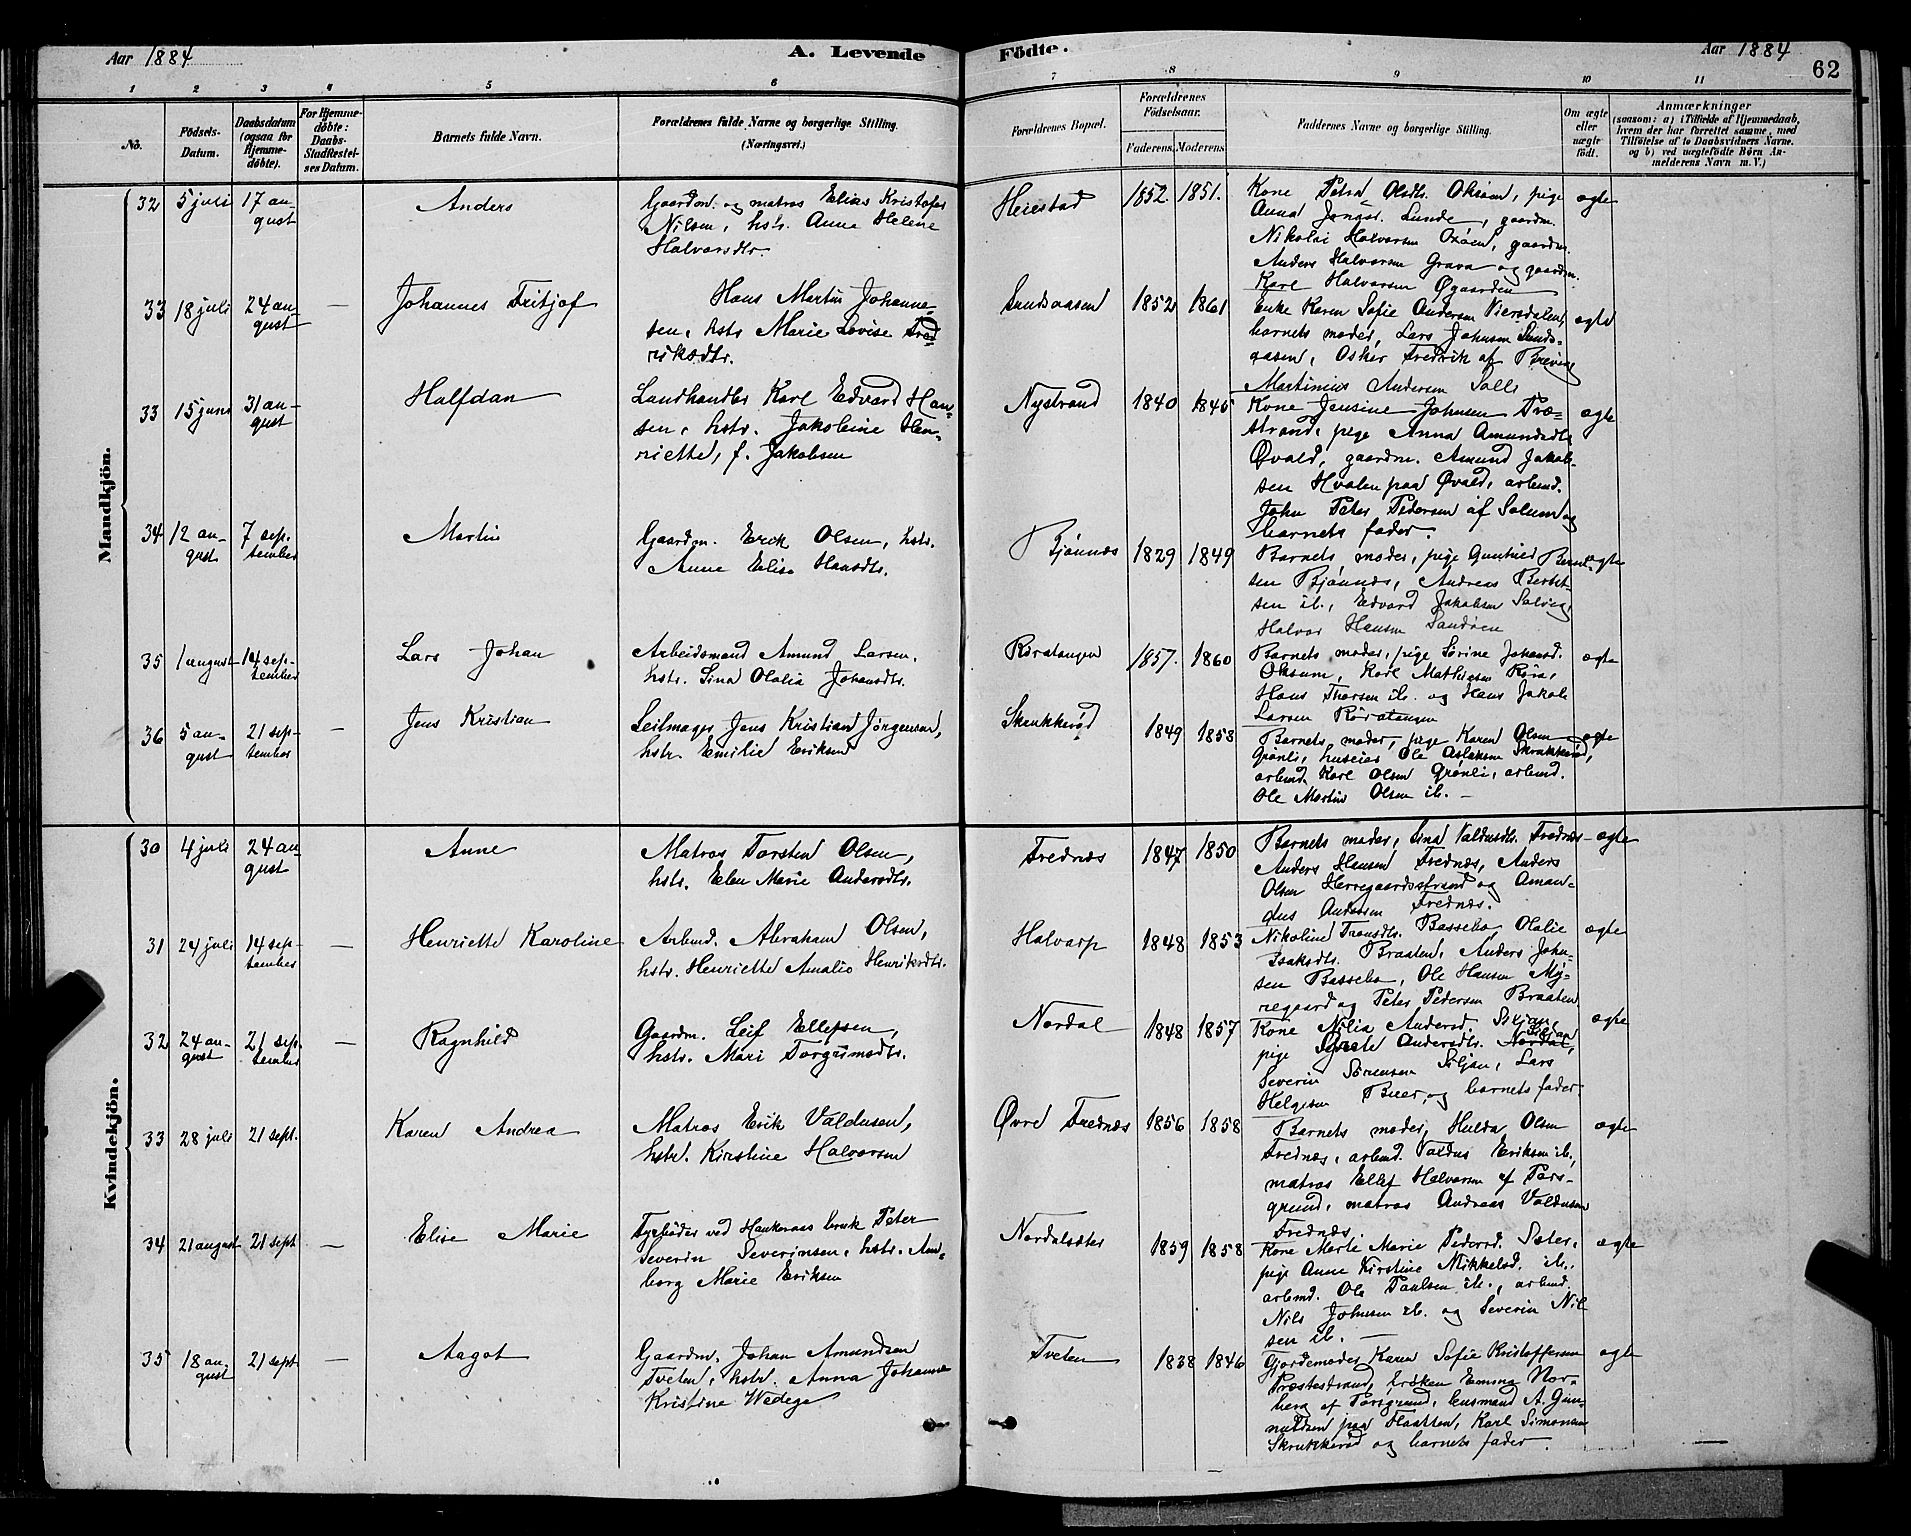 Aar 1884
A. Levende
Fødte.
Aar 1884
62
1 2 3 4 5 6 7 8 9 10 11
No.
Födsels-
Datum.
Daabsdatum
(ogsaa for
Hjemme-
døbte).
For Hjemme-
døbte:
Daabs-
Stadfæstel-
ses Datum.
Barnets fulde Navn.
Forældrenes fulde Navne og borgerlige Stilling.
(Næringsvei.)
Forældrenes Bopæl.
Forældrenes
Fødselsaar.
Faderens. Moderens.
Faddernes Navne og borgerlige Stilling.
Om ægte
eller
uægte
født.
Anmærkninger
(saasom: a) i Tilfælde af Hjemmedaab,
hvem der har forrettet samme, med
Tilføielse af to Daabsvidners Navne.
og b) ved uægtefødte Børn An-
melderens Navn m. V.)
Mandkjön.
32
5 juli
17 au-
gust
Anders
Gaardm. og matros Elias Kristofer
Nilsen, hstr. Anne Helene
Halvorsdtr.
Heiestad
1852. 1851.
Kone Petra Olsdtr. Oksum, pige
Anna Jensdtr. Lunde, gaardm.
Nikolai Halvorsen Oxøen, gaardm.
Anders Halvorsen Grava og gaardm.
Karl Halvorsen Øgaarden
ægte
33
18 juli
24 au-
gust
—
Johannes Fritjof
Hans Martin Johanne-
sen, hstr. Marie Lovise Fred-
riksdtr.
Sundsaasen
1852 1861
Enke Karen Sofie Andersen Viersdalen,
barnets moder, Lars Johnsen Sunds-
aasen, Oskar Fredrik af Brevig
Martinius Andersen Salls
ægte
33
15 juni
31 au-
gust
Halfdan
Landhandler Karl Edvard Han-
sen, hstr. Jakobine Hen-
riette, f. Jakobsen
Nystrand
1840 1845
Kone Jensine Johnsen Træ-
strand, pige Anna Amundsdtr.
Øvald, gaardm. Amund Jakob-
sen Hvalen paa Øvald, arbmd.
John Peter Pedersen af Solum og
barnets fader.
ægte
34
12 au-
gust
7 sep-
tember
Martin
Gaardm. Erik Olsen, hstr.
Anne Elise Hansdtr.
Bjønnes
1829 1849
Barnets moder, pige Gunhild Bernt-
sen Bjønnes, Andreas Berket-
sen ib., Edvard Jakobsen Solvig,
Halvor Hansen Sandøen
ægte
35
1 august
14 sep-
tember
Lars Johan
Arbeidsmand Amund Larsen,
hstr. Lina Olalia Johansdtr.
Røratangen
1857. 1860
Barnets moder, pige Sørine Johansd.
Oksum, Karl Mathisen Røra,
Hans Thorsen ib. og Hans Jakob
Larsen Røratangen
ægte
36
5 au-
gust
21 sep-
tember
—
Jens Kristian
Seilmager Jens Kristian Jørgensen,
hstr. Emilie Eriksen
Skrukkerød
1849 1858
Barnets moder, pige Karen Olsen
Grønli, huseier Ole Aslaksen Skrukkerød,
arbmd. Karl Olsen Grønli, arbmd.
Ole Martin Olsen ib. —
ægte
Kvindekjön.
30
4 juli
24 au-
gust
Anne
Matros Torsten Olsen,
hstr. Elen Marie Andersdtr.
Frednæs
1847 1850
Barnets moder, Lina Valdusdtr. Frednæs
Anders Hansen Frednæs, Anders
Olsen Herregaardsstrand og Aman-
dus Andersen Frednæs.
ægte
31
24 juli
14 sep-
tember
—
Henriette Karoline
Arbmd. Abraham Olsen,
hstr. Henriette Amalie Henriksdtr.
Halvarp
1848 1853
Nikoline Transdtr. Bassebo, Olalie
Isaksdtr. Braaten, Anders John-
sen Bassebo, Ole Hansen My-
regaard og Peter Pedersen Braaten
ægte
32
24 au-
gust
21 sep-
tember
—
Ragnhild
Gaardm. Leif Ellefsen,
hstr. Mari Torgrimsdtr.
Nordal
1848 1857
Kone Nilia Andersd. Siljan,
pige Andersdtr. Nordal, Siljan
Severin Sørensen Siljan, Lars
Helgesen Buer, og barnets fader
ægte
33
28 juli
21 sept.
Karen Andrea
Matros Erik Valdusen,
hstr. Kirstine Halvorsen
Øvre Frednæs
1856 1858
Barnets moder, Hulda Olsen
Frednæs, arbmd. Valdus Eriksen ib.,
matros Ellef Halvorsen af Pors-
grund, matros Andreas Valdusen
Frednæs.
ægte
34
21 august
21 sept
—
Elise Marie
Fyrbøder ved Hankeraas bruk Peter
Severin Severinsen, hstr. An-
borg Marie Eriksen
Nordalsæter
1859 1858
Kone Marte Marie Pedersd. Sæter,
pige Anne Kirstine Mikkelsd. ib.,
arbmd. Ole Paulsen ib., arbmd.
Nils Johnsen ib. og Severin Nil
sen ib. —
ægte
35
18 au-
gust
21 sept
—
Aagot
Gaardm. Johan Amundsen
Tveten, hstr. Anna Johanne
Kristine Wedege
Tveten
1838 1846
Gjordemoder Karen Sofie Kristoffersen
Præstestrand, frøken Emma Nor-
berg af Porsgrund, lensmand A. Gun-
nuldsen paa Flaatten, Karl Simonsen
Skrukkerød og barnets fader.
ægte